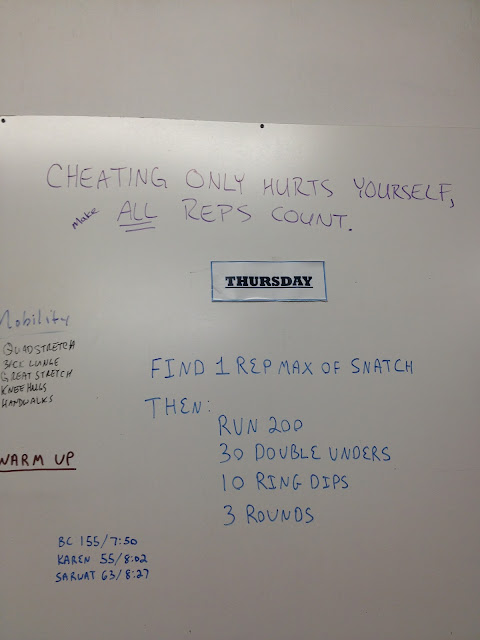 CHEATING ONLY HURTS YOURSELF,
Make ALL REPS COUNT.
THURSDAY
Mobility
QUADSTRETCH
BACK LUNGE
GREAT STRETCH
KNEE HUGS
HANDWALKS
WARM UP
FIND 1 REP MAX OF SNATCH
THEN:
RUN 200
30 DOUBLE UNDERS
10 RING DIPS
3 ROUNDS
BC 155/7:50
KAREN 55/8:02
SARVAT 63/8:27